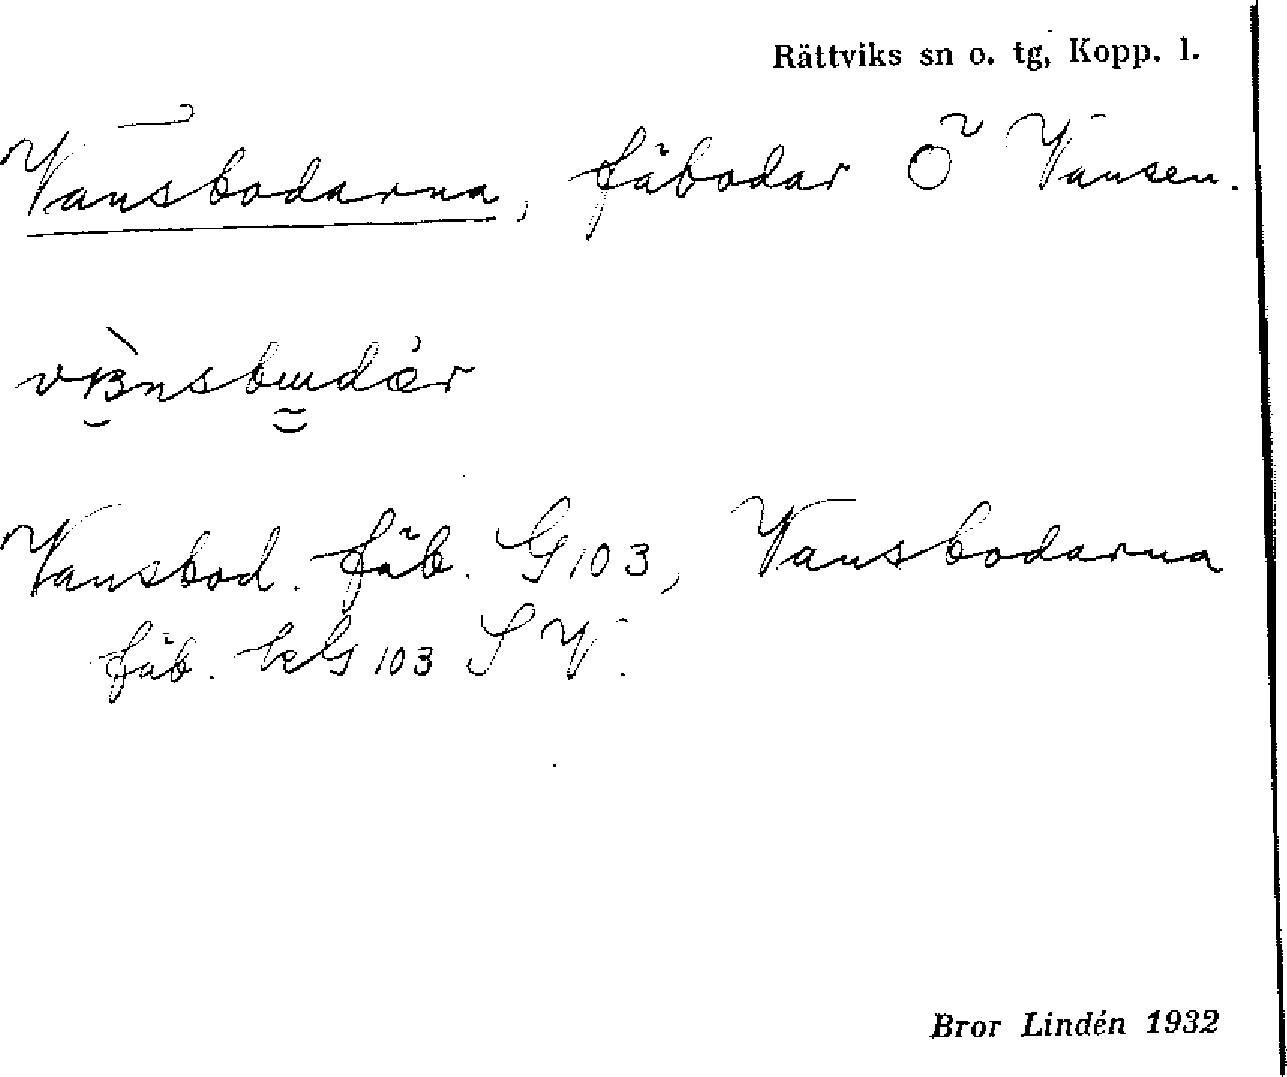 Rättviks sn o. tg, Kopp. l.
Vansbodarna, fäbodar Ö Vansen.
Vansbod. fäb. G 103, Vansbodarna
fäb. kG 103 S V.
Bror Lindén 1932